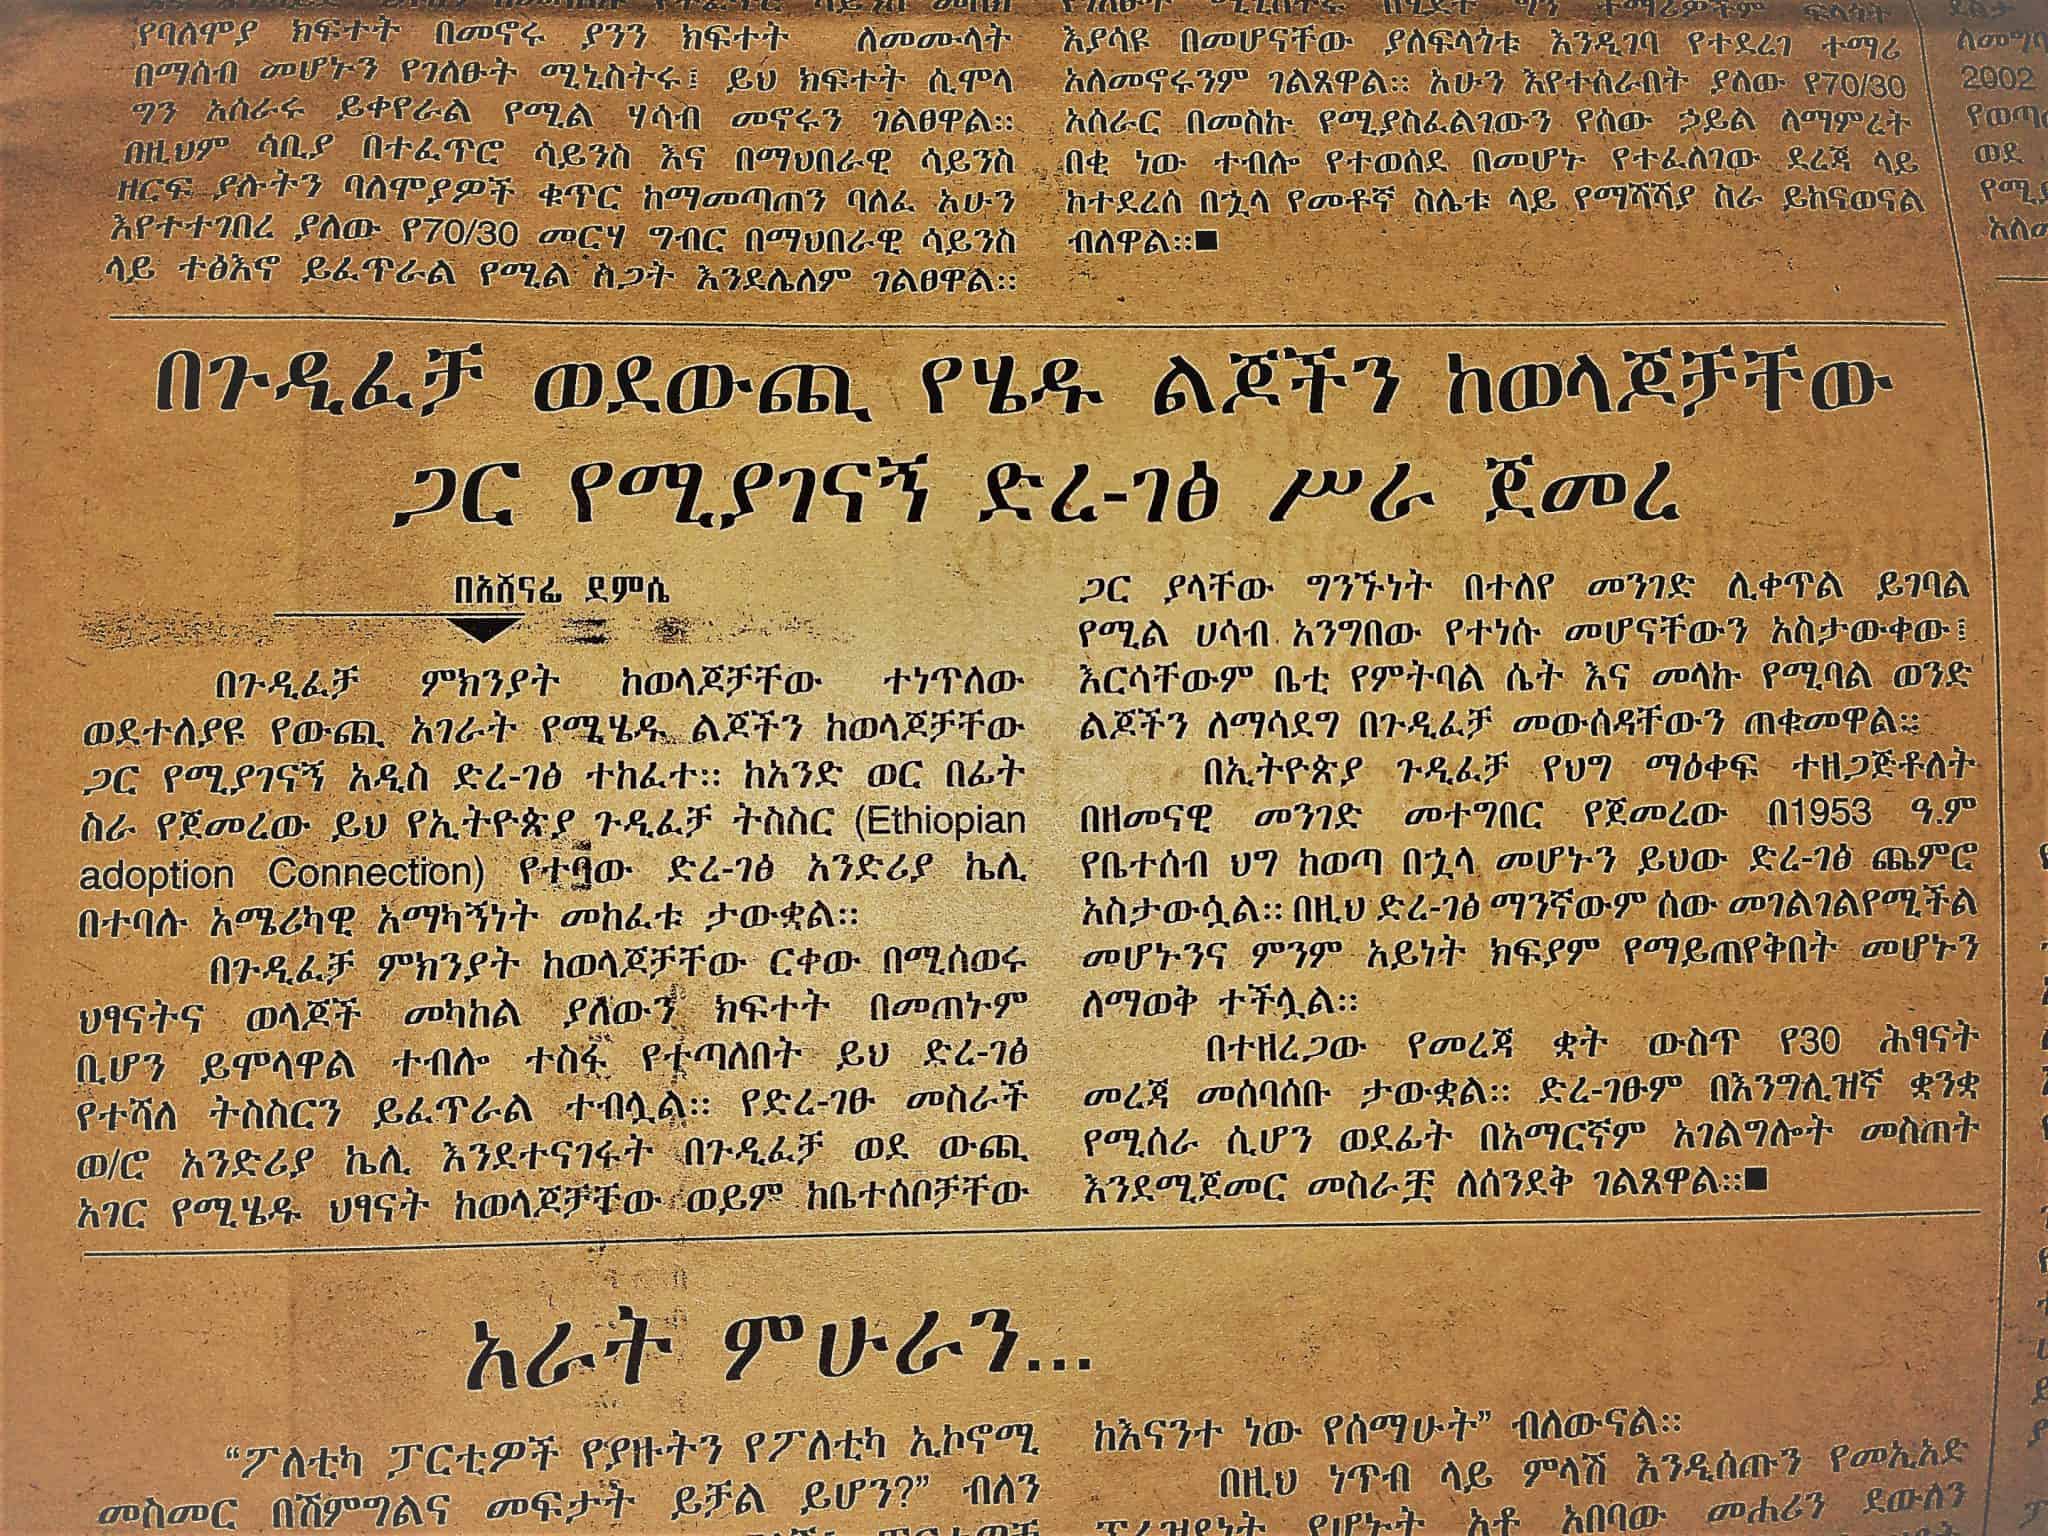 የባለሞያ ክፍተት በመኖሩ ያንን ክፍተት ለመሙላት
በማሰብ መሆኑን የገለፁት ሚኒስትሩ፤ ይህ ክፍተት ሲሞላ
ግን አሰራሩ ይቀየራል የሚል ሃሳብ መኖሩን ገልፀዋል።
በዚህም ሳቢያ በተፈጥሮ ሳይንስ እና በማህበራዊ ሳይንስ
ዘርፍ ያሉትን ባለሞያዎች ቁጥር ከማመጣጠን ባለፈ አሁን
እየተተገበረ ያለው የ70/30 መርሃ ግብር በማህበራዊ ሳይንስ
ላይ ተፅእኖ ይፈጥራል የሚል ስጋት እንደሌለም ገልፀዋል።
እያሳዩ በመሆናቸው ያለፍላጎቱ እንዲገባ የተደረገ ተማሪ
አለመኖሩንም ገልጸዋል። አሁን እየተሰራበት ያለው የ70/30
አሰራር በመስኩ የሚያስፈልገውን የሰው ኃይል ለማምረት
በቂ ነው ተብሎ የተወሰደ በመሆኑ የተፈለገው ደረጃ ላይ
ከተደረሰ በኋላ የመቶኛ ስሌቱ ላይ የማሻሻያ ስራ ይከናወናል
ብለዋል።■
2002
ወደ
በጉዲፈቻ ወደውጪ የሄዱ ልጆችን ከወላጆቻቸው
ጋር የሚያገናኝ ድረ-ገፅ ሥራ ጀመረ
በአሸናፊ ደምሴ
በጉዲፈቻ ምክንያት ከወላጆቻቸው ተነጥለው
ወደተለያዩ የውጪ አገራት የሚሄዱ ልጆችን ከወላጆቻቸው
ጋር የሚያገናኝ አዲስ ድረ-ገፅ ተከፈተ። ከአንድ ወር በፊት
ስራ የጀመረው ይህ የኢትዮጵያ ጉዲፈቻ ትስስር (Ethiopian
adoption Connection) የተባው ድረ-ገፅ አንድሪያ ኬሊ
በተባሉ አሜሪካዊ አማካኝነት መከፈቱ ታውቋል።
በጉዲፈቻ ምክንያት ከወላጆቻቸው ርቀው በሚሰወሩ
ህፃናትና ወላጆች መካከል ያለውን ክፍተት በመጠኑም
ቢሆን ይሞላዋል ተብሎ ተስፋ የተጣለበት ይህ ድረ-ገፅ
የተሻለ ትስስርን ይፈጥራል ተብሏል። የድረ-ገፁ መስራች
ወ/ሮ አንድሪያ ኬሊ እንደተናገሩት በጉዲፈቻ ወደ ውጪ
አገር የሚሄዱ ህፃናት ከወላጆቻቸው ወይም ከቤተሰቦቻቸው
ጋር ያላቸው ግንኙነት በተለየ መንገድ ሊቀጥል ይገባል
የሚል ሀሳብ አንግበው የተነሱ መሆናቸውን አስታውቀው፤
እርሳቸውም ቤቲ የምትባል ሴት እና መላኩ የሚባል ወንድ
ልጆችን ለማሳደግ በጉዲፈቻ መውሰዳቸውን ጠቁመዋል።
በኢትዮጵያ ጉዲፈቻ የህግ ማዕቀፍ ተዘጋጅቶለት
በዘመናዊ መንገድ መተግበር የጀመረው በ1953 ዓ.ም
የቤተሰብ ህግ ከወጣ በኋላ መሆኑን ይህው ድረ-ገፅ ጨምሮ
አስታውሷል። በዚህ ድረ-ገፅ ማንኛውም ሰው መገልገልየሚችል
መሆኑንና ምንም አይነት ክፍያም የማይጠየቅበት መሆኑን
ለማወቅ ተችሏል።
በተዘረጋው የመረጃ ቋት ውስጥ የ30 ሕፃናት
መረጃ መሰባሰቡ ታውቋል። ድረ-ገፁም በእንግሊዝኛ ቋንቋ
የሚሰራ ሲሆን ወደፊት በአማርኛም አገልግሎት መስጠት
እንደሚጀመር መስራቿ ለሰንደቅ ገልጸዋል።■
አራት ምሁራን...
“ፖለቲካ ፓርቲዎች የያዙትን የፖለቲካ ኢኮኖሚ
መስመር በሽምግልና መፍታት ይቻል ይሆን?” ብለን
ከእናንተ ነው የሰማሁት” ብለውናል።
በዚህ ነጥብ ላይ ምላሽ እንዲሰጡን የመኢአድ
ፕሬዝደንት የሆኑት አቶ አበባው መሐሪን ደውለን